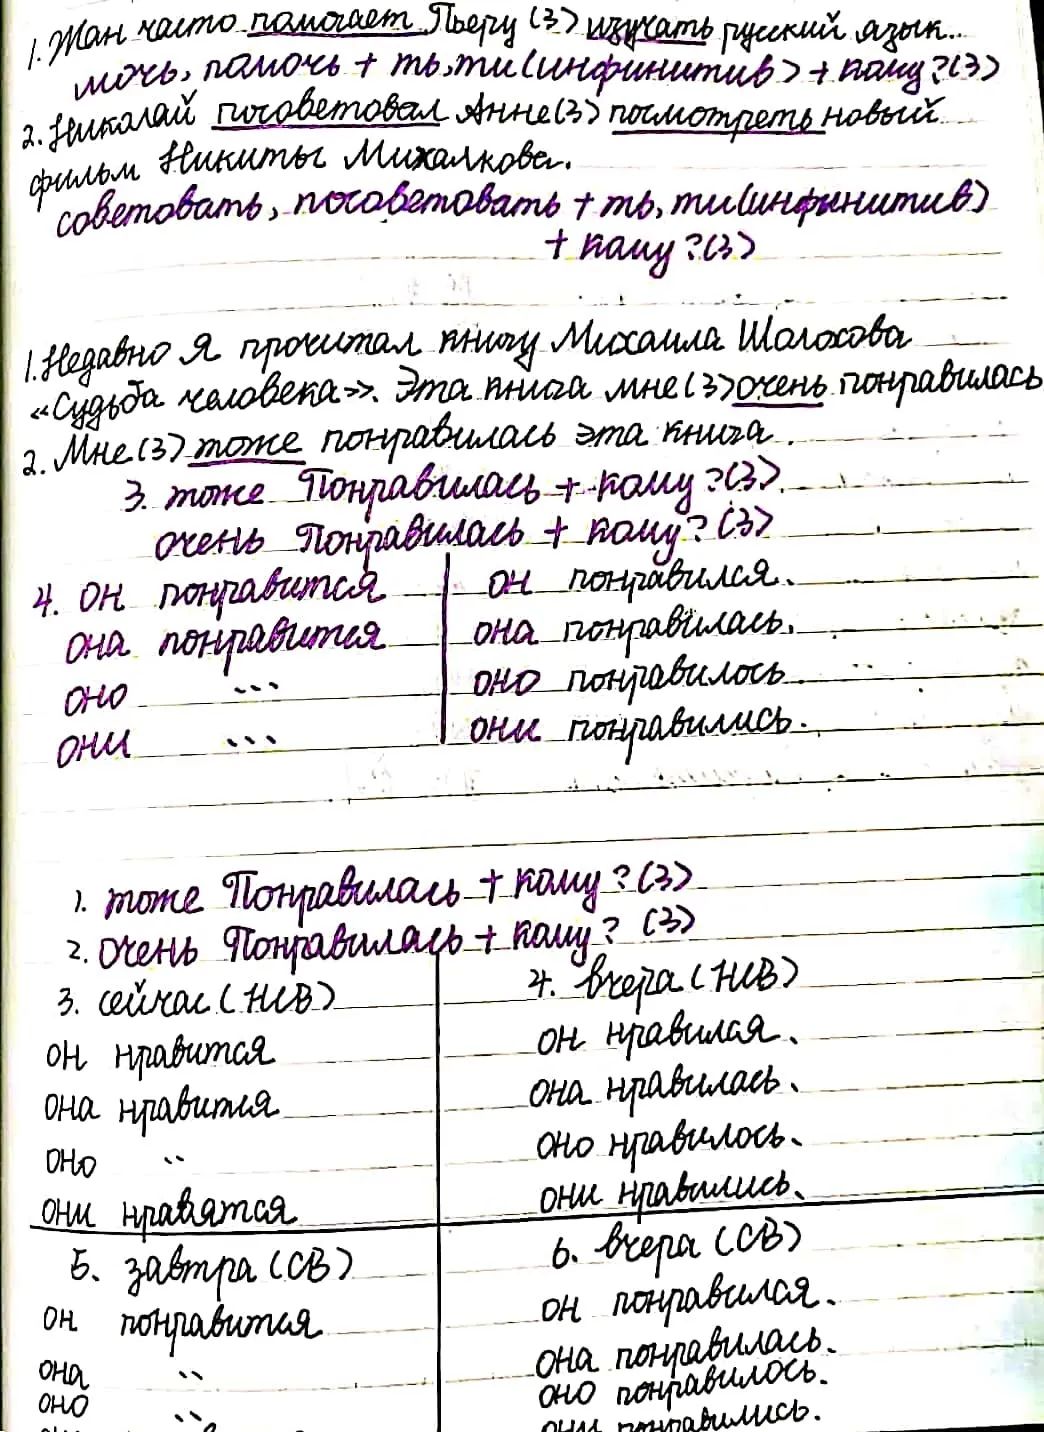 1. Жан часто помогает Пьеру (3) изучать русский язык...
мочь, помочь + ть, ти (инфинитив) + кому? (3)
2. Николай посоветовал Анне (3) посмотреть новый
фильм Никиты Михалкова.
советовать, посоветовать + ть, ти (инфинитив)
+ кому? (3)
1. Недавно Я прочитал книгу Михаила Шолохова
«Судьба человека». Эта книга мне (3) очень понравилась
2. Мне (3) тоже понравилась эта книга.
3. тоже Понравилась + кому? (3)
очень Понравилась + кому? (3)
4. он понравится он понравился.
она понравится она понравилась.
оно ... оно понравилось.
они ... они понравились.
1. тоже Понравилась + кому? (3)
2. очень Понравилась + кому? (3)
3. сейчас (НСВ) 4. вчера (НСВ)
он нравится он нравился.
она нравится она нравилась.
оно " оно нравилось.
они нравятся они нравились.
5. завтра (СВ) 6. вчера (СВ)
он понравится он понравился.
она " она понравилась.
оно " оно понравилось.
они понравились.